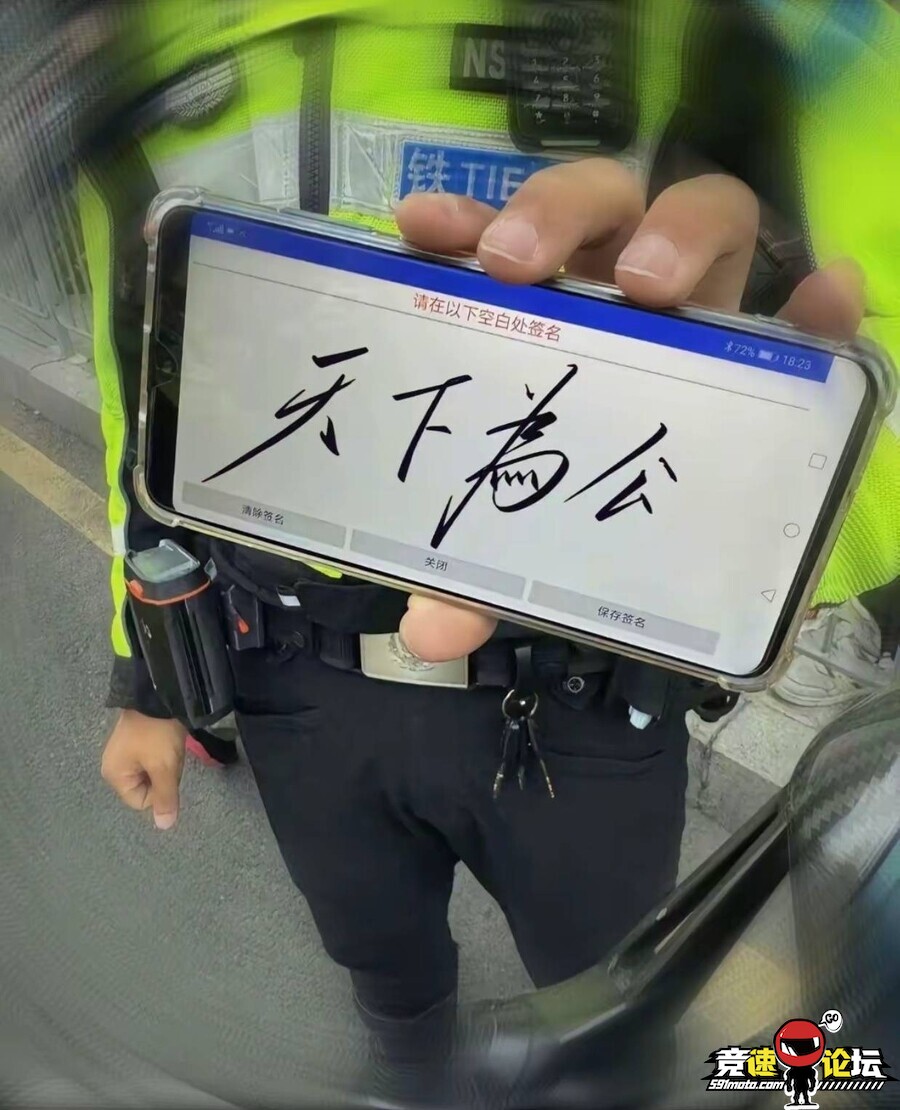 NS
铁 TIE
72% 18:23
请在以下空白处签名
天下為公
清除签名
关闭
保存签名
GO
竞速论坛
591moto.com